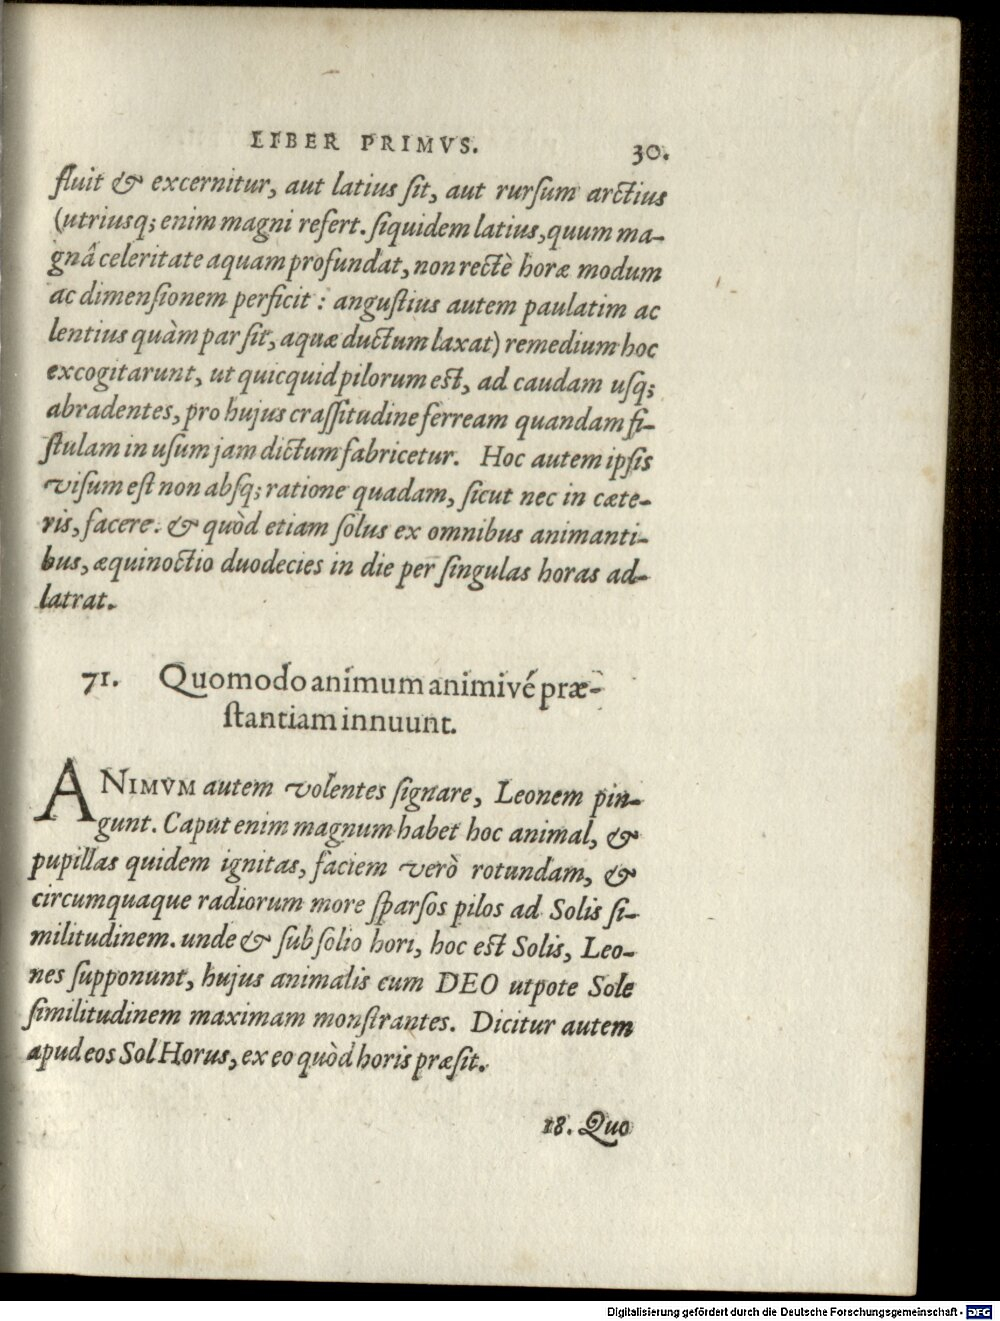 LIBER PRIMVS. 30.
fluit & excernitur, aut latius sit, aut rursum arctius
(utriusq; enim magni refert. siquidem latius, quum ma-
gnâ celeritate aquam profundat, non rectè horæ modum
ac dimensionem perficit: angustius autem paulatim ac
lentius quàm par sit, aquæ ductum laxat) remedium hoc
excogitarunt, ut quicquid pilorum est, ad caudam usq;
abradentes, pro hujus crassitudine ferream quandam fi-
stulam in usum jam dictum fabricetur. Hoc autem ipsis
visum est non absq; ratione quadam, sicut nec in cæte-
ris, facere. & quòd etiam solus ex omnibus animanti-
bus, æquinoctio duodecies in die per singulas horas ad-
latrat.
71. Quomodo animum animivé præ-
stantiam innuunt.
ANIMVM autem volentes signare, Leonem pin-
gunt. Caput enim magnum habet hoc animal, &
pupillas quidem ignitas, faciem verò rotundam, &
circumquaque radiorum more sparsos pilos ad Solis si-
militudinem. unde & sub solio hori, hoc est Solis, Leo-
nes supponunt, hujus animalis cum DEO utpote Sole
similitudinem maximam monstrantes. Dicitur autem
apud eos Sol Horus, ex eo quòd horis præsit.
18. Quo
Digitalisierung gefördert durch die Deutsche Forschungsgemeinschaft - DFG